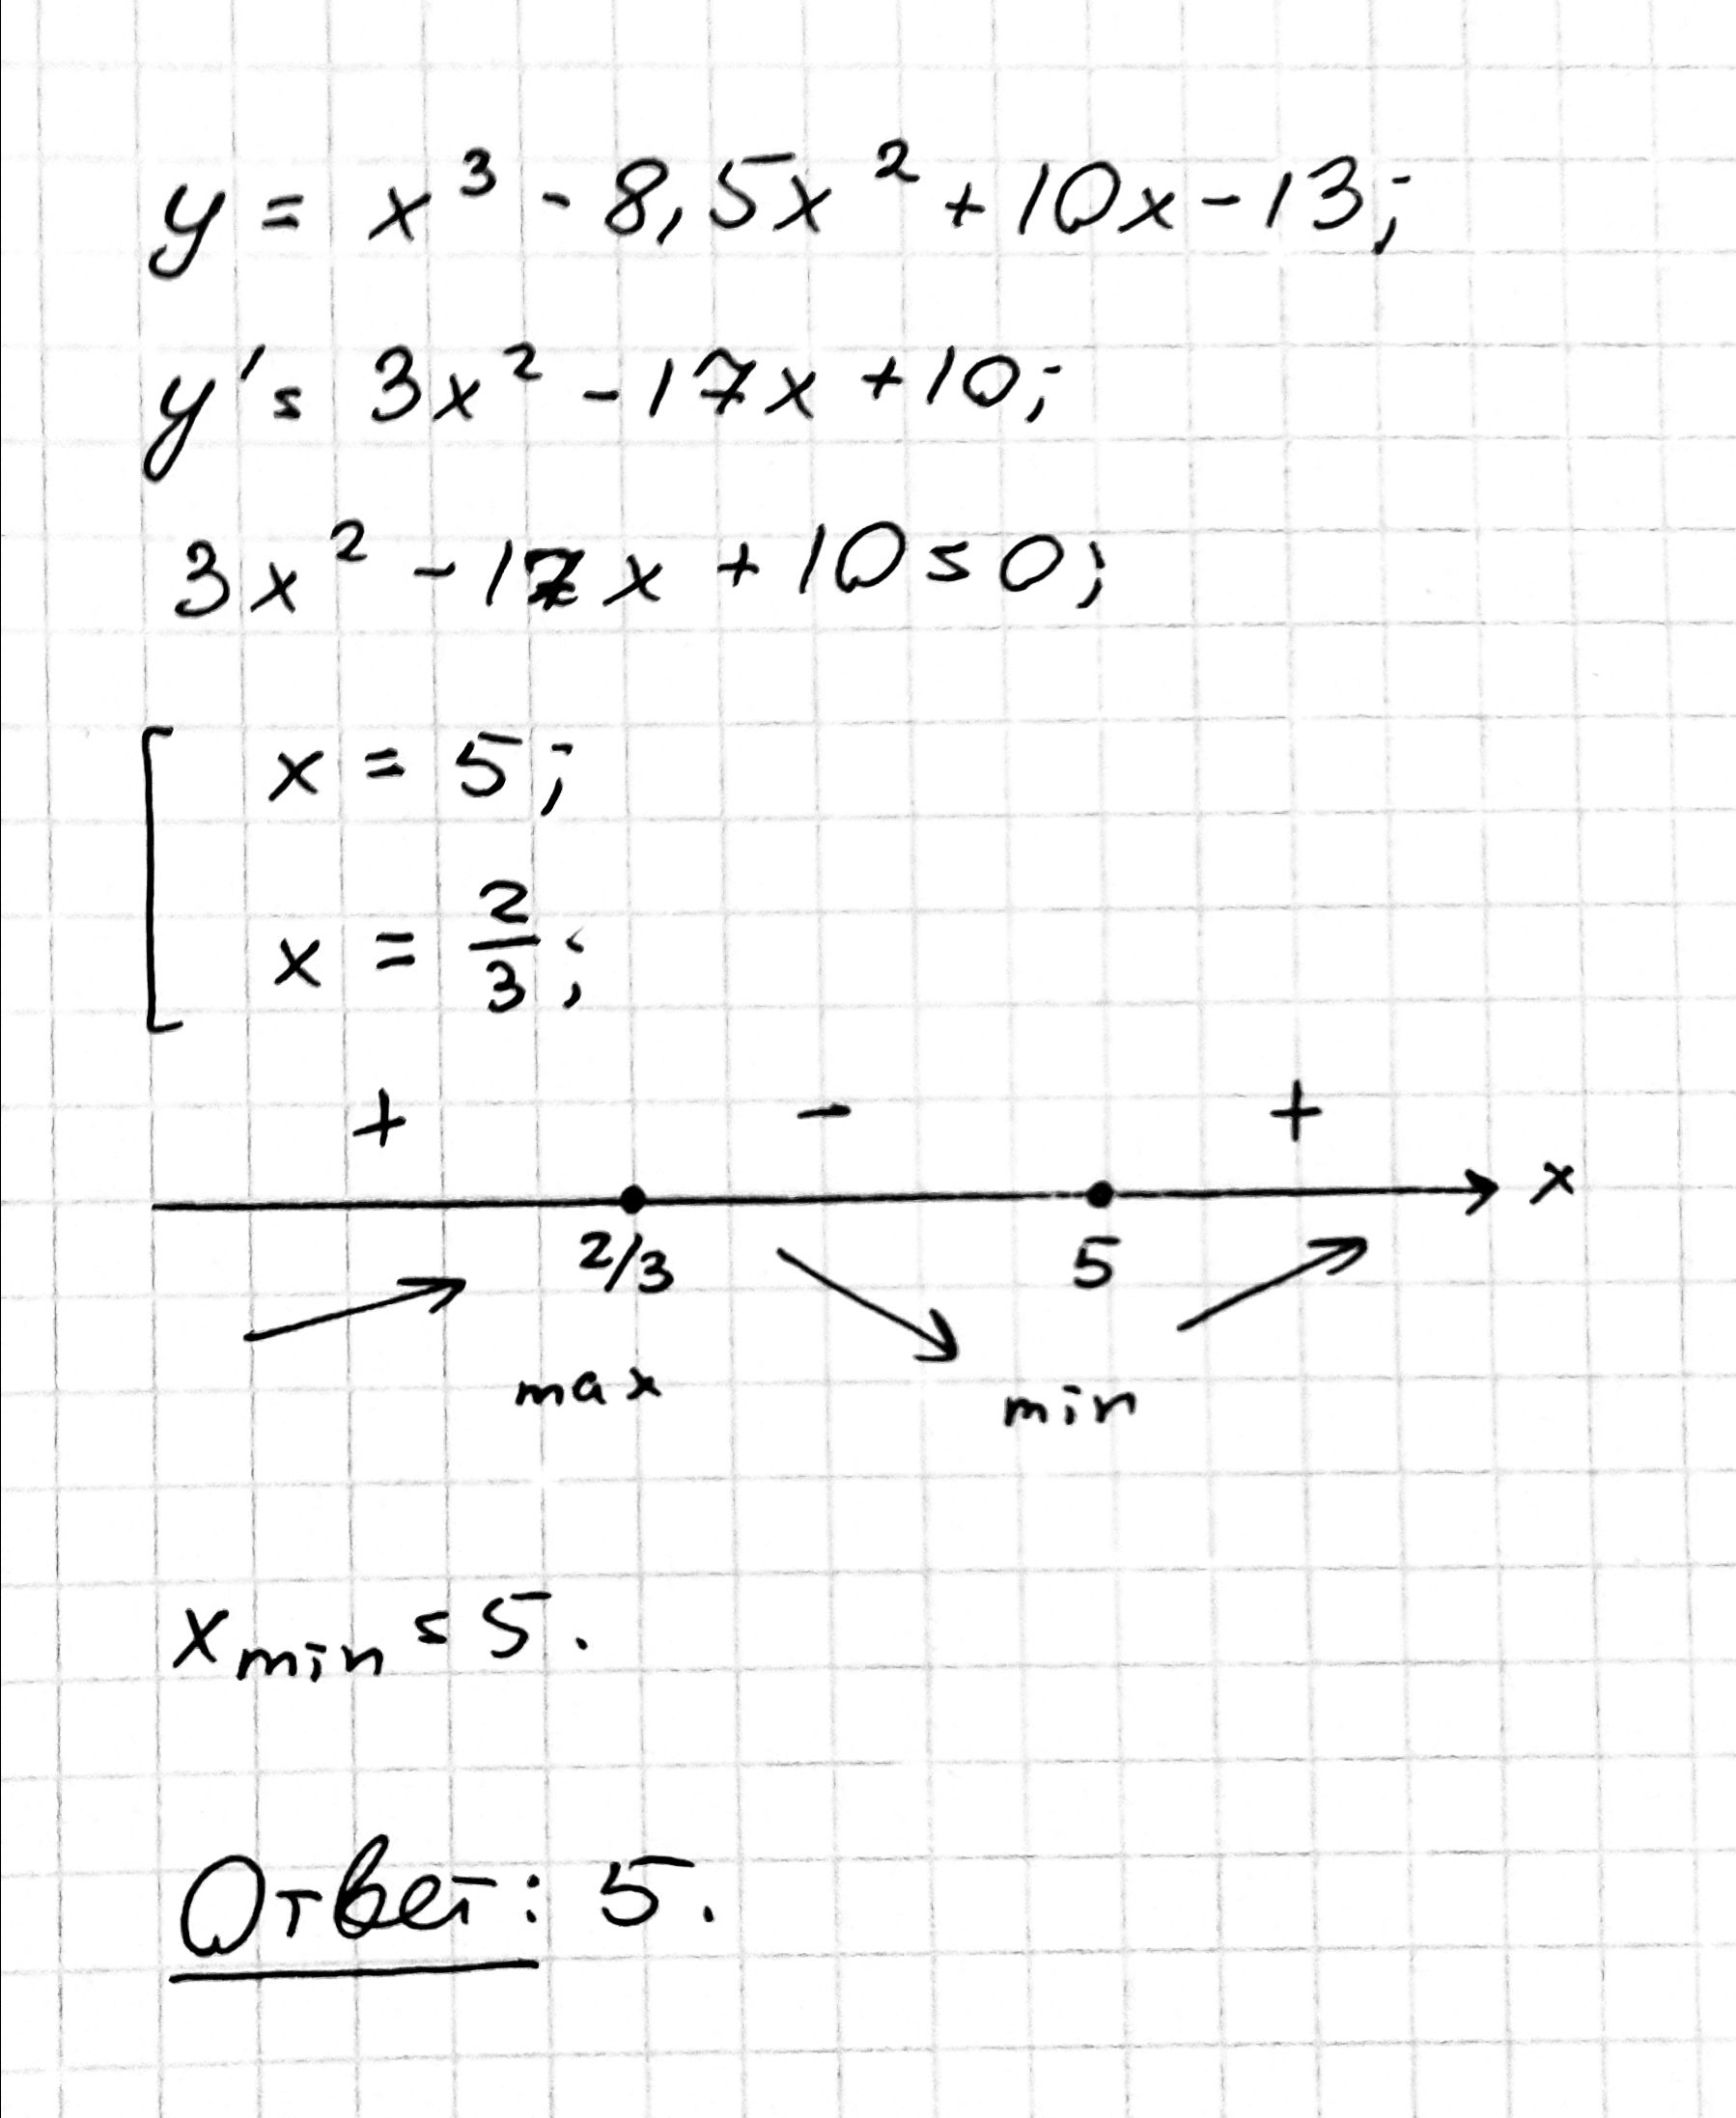 y = x³ - 8,5x² + 10x - 13;
y' = 3x² - 17x + 10;
3x² - 17x + 10 = 0;
x = 5;
x = 2/3;
+ - +
x
2/3 5
max min
x min = 5.
Ответ: 5.